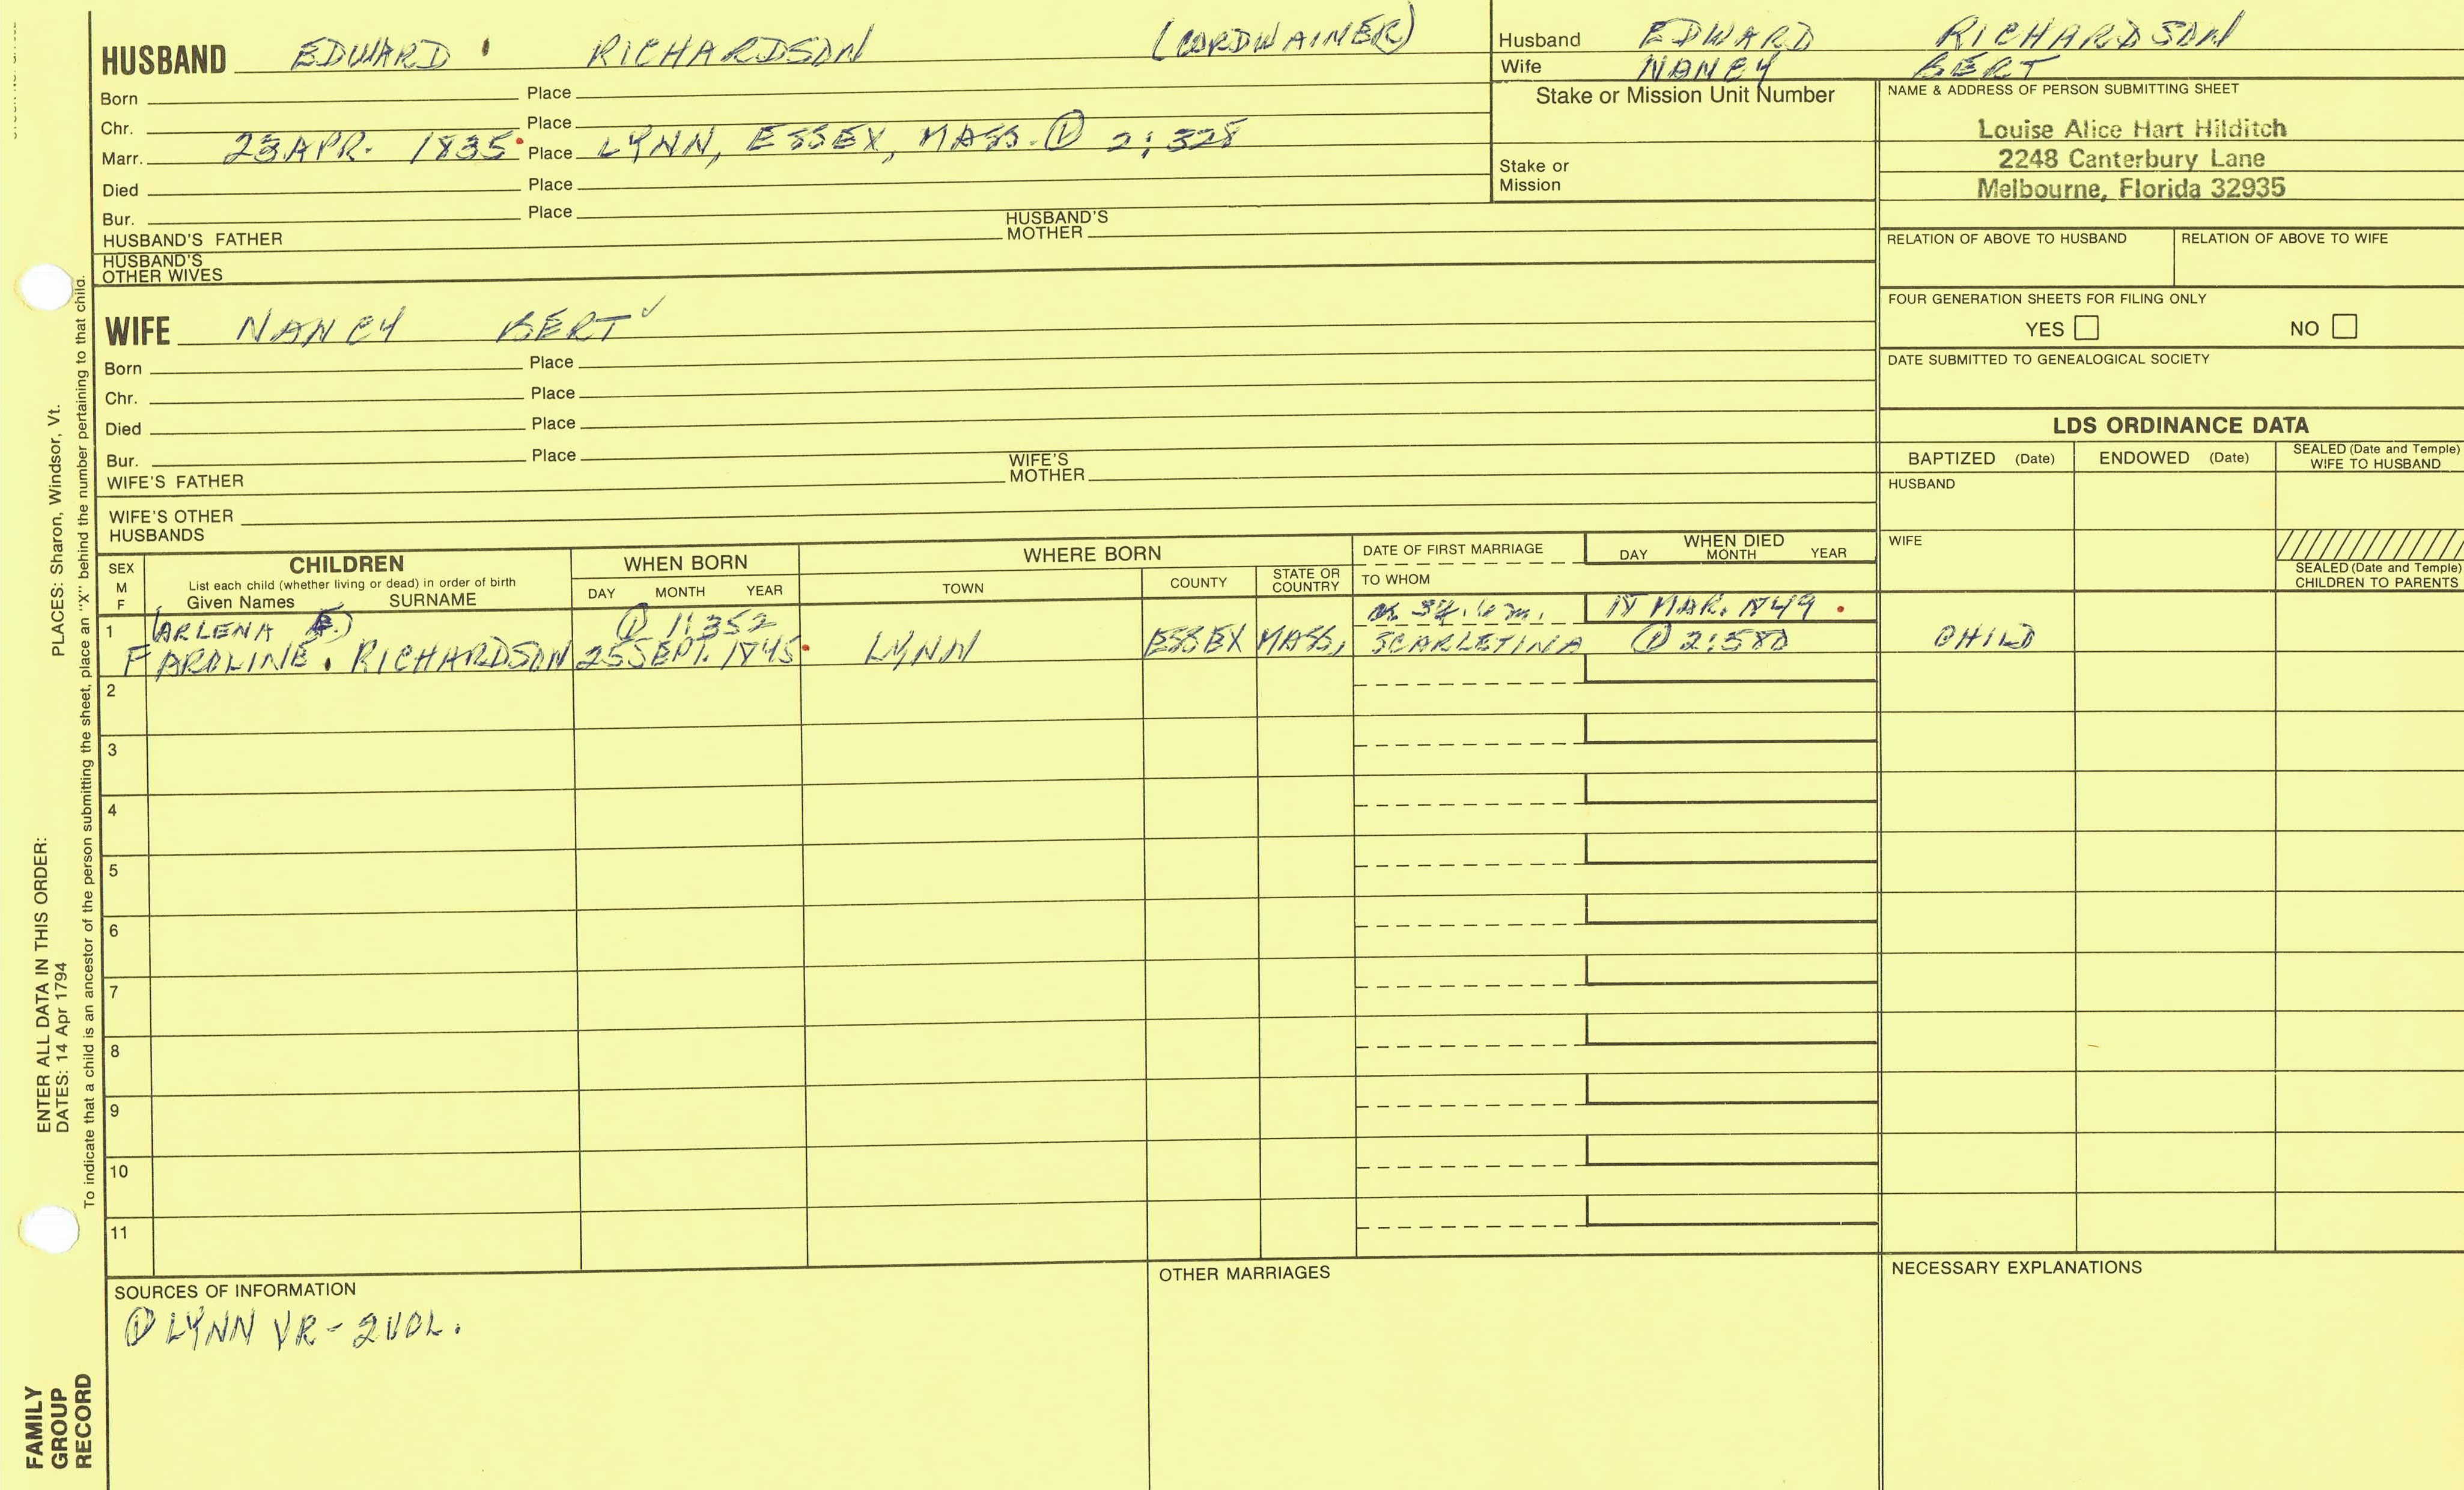 HUSBAND EDWARD RICHARDSON (CORDWAINER)
Born Place
Chr. Place
Marr. 23 APR. 1835 Place LYNN, ESSEX, MASS. ① 2:328
Died Place
Bur. Place
HUSBAND'S FATHER HUSBAND'S MOTHER
HUSBAND'S OTHER WIVES
Husband EDWARD RICHARDSON
Wife NANCY BERT
Stake or Mission Unit Number
Stake or Mission
NAME & ADDRESS OF PERSON SUBMITTING SHEET
Louise Alice Hart Hilditch
2248 Canterbury Lane
Melbourne, Florida 32935
RELATION OF ABOVE TO HUSBAND RELATION OF ABOVE TO WIFE
FOUR GENERATION SHEETS FOR FILING ONLY
YES NO
DATE SUBMITTED TO GENEALOGICAL SOCIETY
WIFE NANCY BERT ✓
Born Place
Chr. Place
Died Place
Bur. Place
WIFE'S FATHER WIFE'S MOTHER
WIFE'S OTHER HUSBANDS
LDS ORDINANCE DATA
BAPTIZED (Date) ENDOWED (Date) SEALED (Date and Temple) WIFE TO HUSBAND
HUSBAND
WIFE
SEALED (Date and Temple) CHILDREN TO PARENTS
SEX M F
CHILDREN
List each child (whether living or dead) in order of birth
Given Names SURNAME
WHEN BORN
DAY MONTH YEAR
WHERE BORN
TOWN COUNTY STATE OR COUNTRY
DATE OF FIRST MARRIAGE
TO WHOM
WHEN DIED
DAY MONTH YEAR
1 (ARLENA E.) ① 1:352 18 MAR. 1849
F AROLINE RICHARDSON 25 SEPT. 1845 LYNN ESSEX MASS, SCARLETINA ① 2:580 CHILD
2
3
4
5
6
7
8
9
10
11
SOURCES OF INFORMATION
① LYNN VR - 2 VOL.
OTHER MARRIAGES
NECESSARY EXPLANATIONS
ENTER ALL DATA IN THIS ORDER:
DATES: 14 Apr 1794 PLACES: Sharon, Windsor, Vt.
To indicate that a child is an ancestor of the person submitting the sheet, place an "X" behind the number pertaining to that child.
FAMILY
GROUP
RECORD